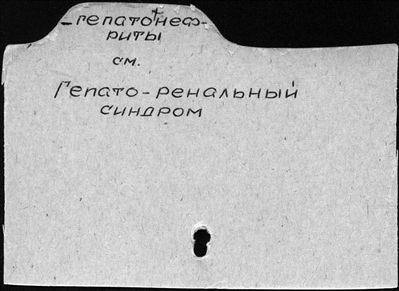 -гепатонеф-
риты
см.
Гепато-ренальный
синдром